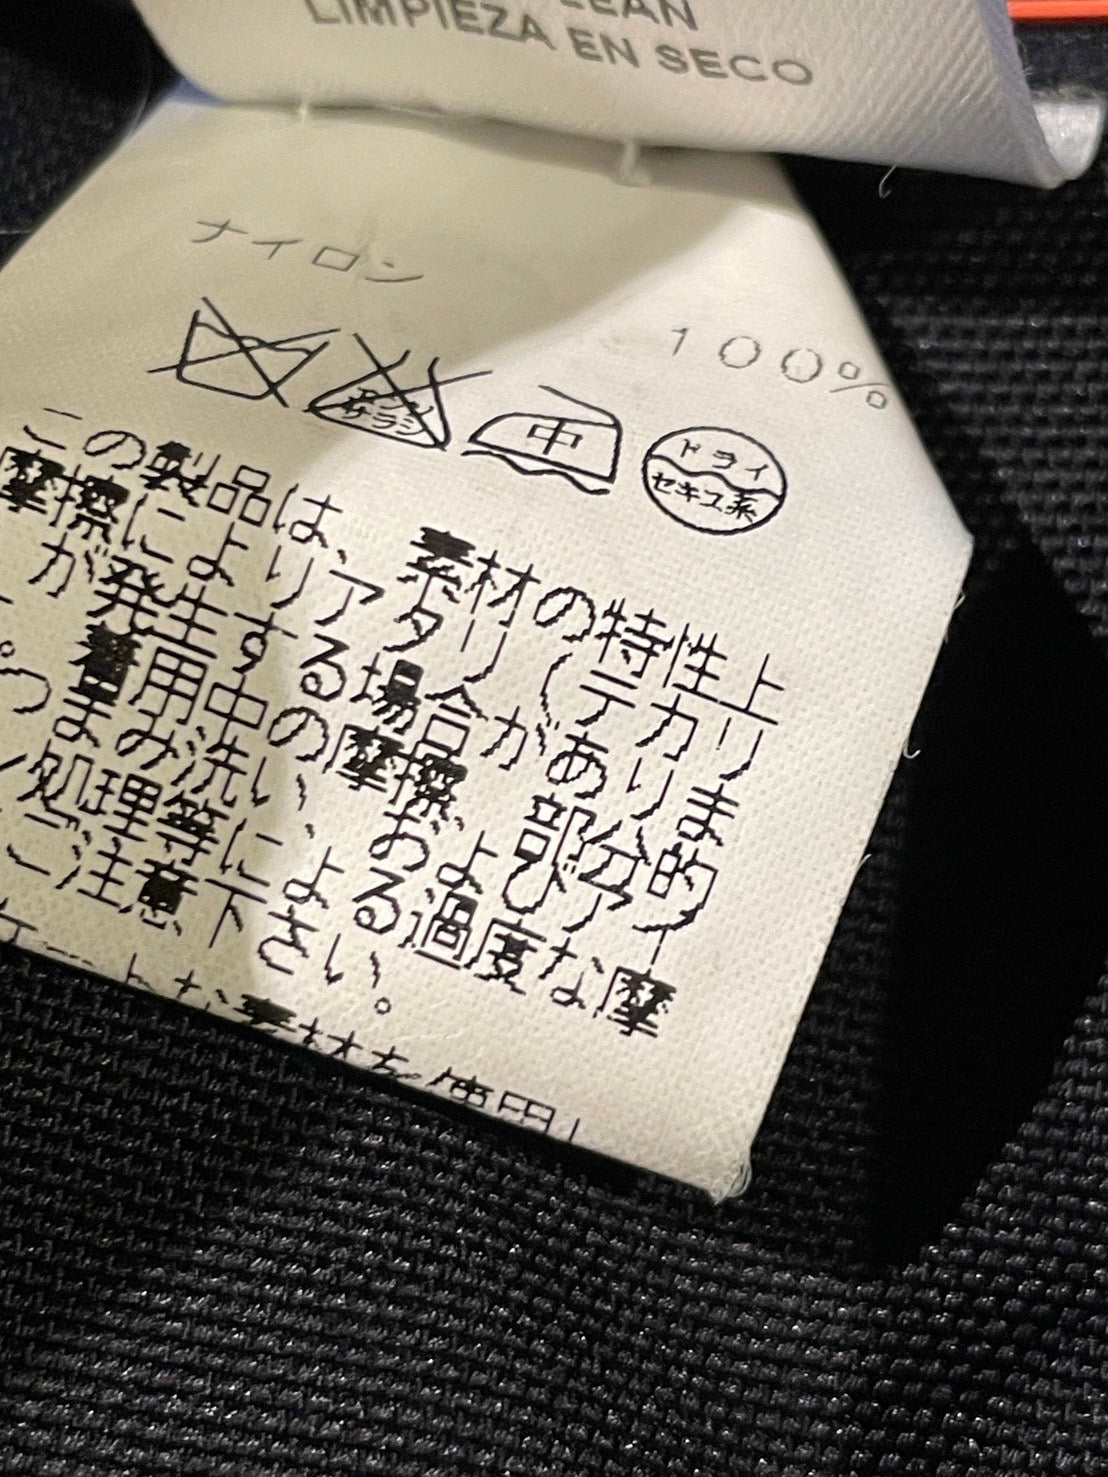 LEAN
LIMPIEZA EN SECO
ナイロン
100%
エンソ
サラシ
中
ドライ
セキユ系
この製品は、素材の特性上
摩擦によりアタリ(テカリ
が発生する場合があります
着用中の摩擦、部分的
つまみ洗い、およびアイ
ン処理等による過度な摩
ご注意下さい。
ケートな素材を使用し